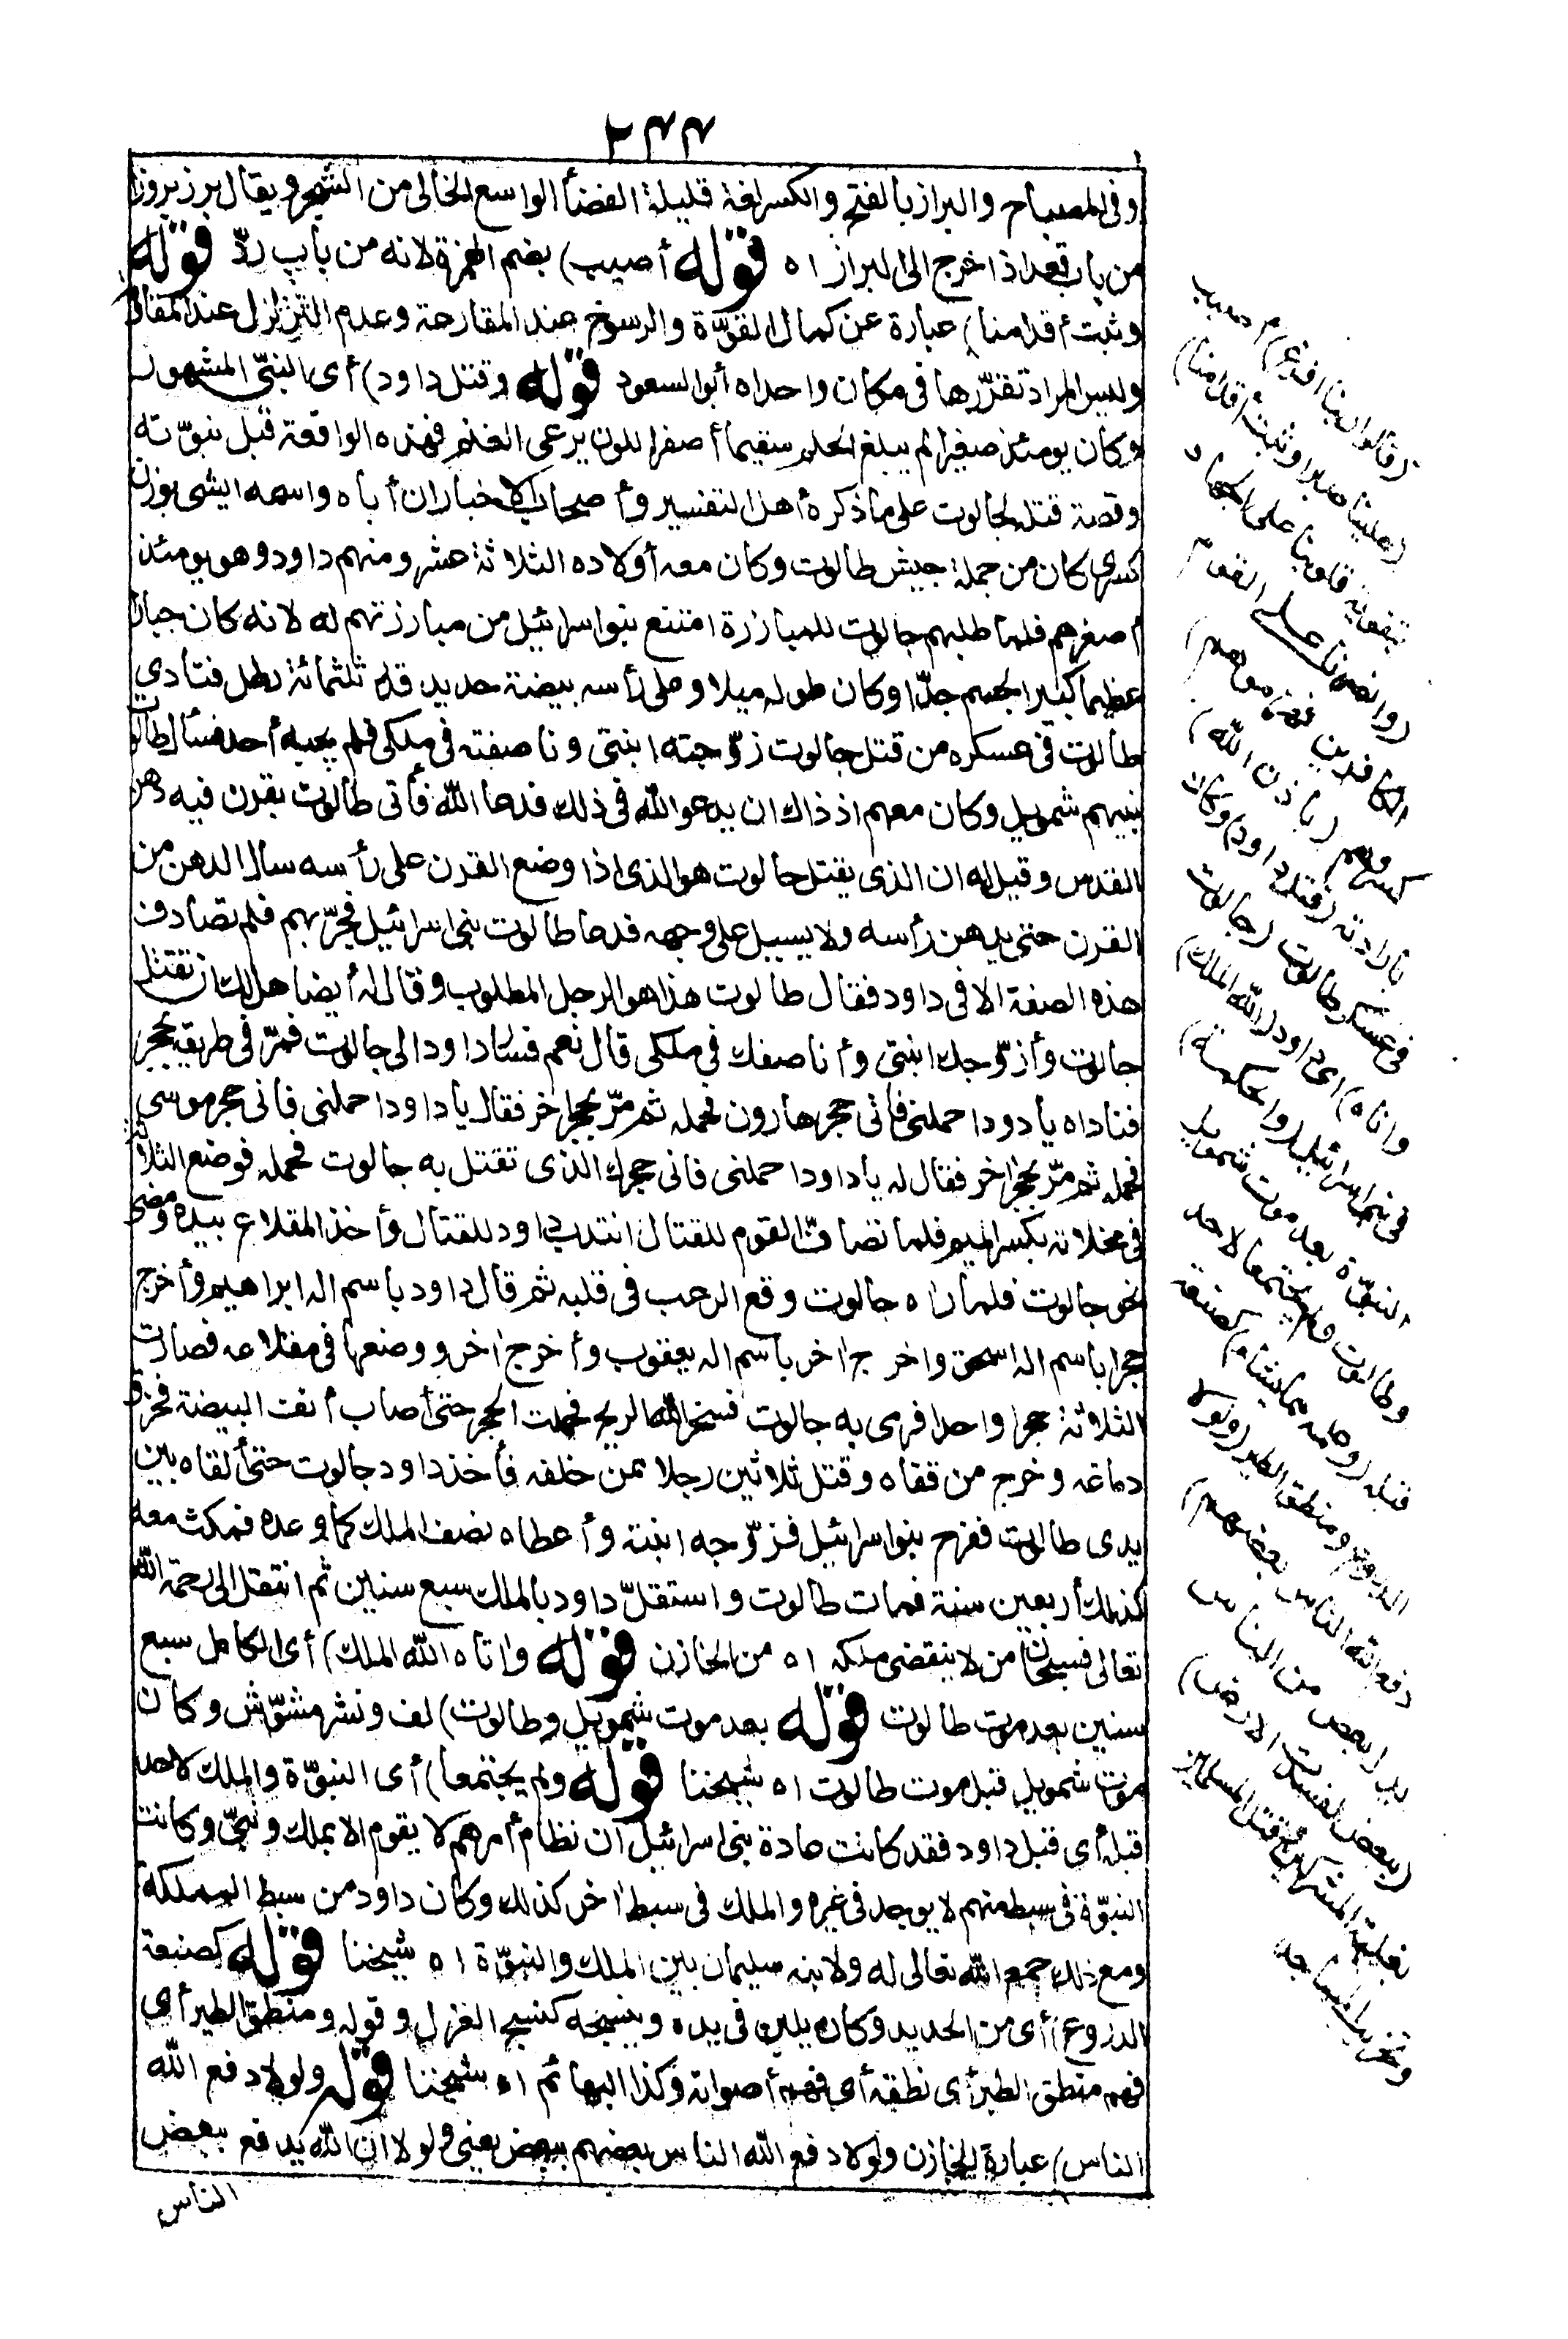 ٢٤٤
وفى المصباح والبراز بالفتح والكسر لغة قليلة الفضأ الواسع الخالى من الشجر ويقال برز بروزا
من باب قعد اذا خرج الى البراز اه قوله أصيب) بضم الهمزة لانه من باب ردّ قوله
وثبت أقدامنا) عبارة عن كمال القوّة والرسوخ عند المقارعة وعدم التزلزل عند المقاو
وليس المراد تقرّرها فى مكان واحد اه أبو السعود قوله وقتل داود) أى النبىّ المشهور
وكان يومئذ صغيرا لم يبلغ الحلم سقيما أصفر اللون يرعى الغنم فهذه الواقعة قبل نبوّته
وقصة قتله لجالوت على ما ذكره أهل التفسير وأصحاب الاخباران أباه واسمه ايشى بوزن
كسرى كان من جملة جيش طالوت وكان معه أولاده الثلاثة عشر ومنهم داود وهو يومئذ
أصغرهم فلما طلبهم جالوت للمبارزة امتنع بنوا سرائيل من مبارزتهم له لانه كان جبارا
عظيما كبير الجسم جدّا وكان طوله ميلا وعلى رأسه بيضة حديد قدر ثلثمائة رطل فنادى
طالوت فى عسكره من قتل جالوت زوّجته ابنتى وناصفته فى ملكى فلم يجبه أحد فسأل طالوت
نبيهم شمويل وكان معهم اذ ذاك ان يدعو الله فى ذلك فدعا الله فأتى طالوت بقرن فيه دهن
القدس وقيل له ان الذى يقتل جالوت هو الذى اذا وضع القرن على رأسه سال الدهن من
القرن حتى يدهن رأسه ولا يسيل على وجهه فدعا طالوت بنى اسرائيل فجرّبهم فلم تصادف
هذه الصفة الا فى داود فقال طالوت هذا هو الرجل المطلوب وقال له أيضا هل لك ان تقتل
جالوت وأزوّجك ابنتى وأناصفك فى ملكى قال نعم فسار داود الى جالوت فمرّ فى طريقه بحجر
فناداه يا دود احملنى فأنى حجر هارون فحمله ثم مرّ بحجر اخر فقال يا داود احملنى فانى حجر موسى
فحمله ثم مرّ بحجر اخر فقال له يا داود احملنى فانى حجرك الذى تقتل به جالوت فحمله فوضع الثلاثة
فى مخلاته بكسر الميم فلما تصافّ القوم للقتال انتدب داود للقتال وأخذ المقلاع بيده ومضى
نحو جالوت فلما راه جالوت وقع الرعب فى قلبه ثم قال داود باسم اله ابراهيم وأخرج
حجرا باسم اله اسحق واخر ج اخر باسم اله يعقوب وأخرج اخر ووضعها فى مقلاعه فصارت
الثلاثة حجرا واحدا فرمى به جالوت فسخر الله الريح فحملت الحجر حتى أصاب أنف البيضة فخرق
دماغه وخرج من قفاه وقتل ثلاثين رجلا ممن خلفه فأخذ داود جالوت حتى ألقاه بين
يدى طالوت ففرح بنوا سرائيل فزوّجه ابنته وأعطاه نصف الملك كما وعده فمكث معه
كذلك أربعين سنة فمات طالوت واستقلّ داود بالملك سبع سنين ثم انتقل الى رحمة الله
تعالى فسبحان من لا ينقضى ملكه اه من الخازن قوله واتاه الله الملك) أى الكامل سبع
سنين بعد موت طالوت قوله بعد موت شمويل وطالوت) لف ونشر مشوّش وكان
موت شمويل قبل موت طالوت اه شيخنا قوله ولم يجتمعا) أى النبوّة والملك لاحد
قبله أى قبل داود فقد كانت عادة بنى اسرائيل ان نظام أمرهم لا يقوم الا بملك ونبىّ وكانت
النبوّة فى سبط منهم لا يوجد فى غيره والملك فى سبط اخر كذلك وكان داود من سبط المملكة
ومع ذلك جمع الله تعالى له ولابنه سليمان بين الملك والنبوّة اه شيخنا قوله كصنعة
الدروع) أى من الحديد وكان يلين فى يده وينسجه كنسج الغزل وقوله ومنطق الطير أى
فهم منطق الطير أى نطقه أى فهم أصواته وكذا البهائم اه شيخنا قوله ولولا دفع الله
الناس) عبارة الخازن ولولا دفع الله الناس بعضهم ببعض يعنى ولولا ان الله يدفع ببعض
الناس
(قالوا ربنا افرغ) اصبب
(علينا صبرا وثبت أقدامنا)
بتقوية قلوبنا على الجهاد
(وانصرنا على القوم
الكافرين فهزموهم)
كسروهم (باذن الله)
بارادته (وقتل داود) وكان
فى عسكر طالوت (جالوت
واتاه) اى داود (الله الملك)
فى بنى اسرائيل (والحكمة)
النبوّة بعد موت شمويل
وطالوت ولم يجتمعا لاحد
قبله (وعلمه مما يشا) كصنعة
الدروع ومنطق الطير (ولولا
دفع الله الناس بعضهم)
بدل بعض من الناس
(ببعض لفسدت الارض)
بغلبة المشركين وقتل المسلمين
وتخريب المساجد